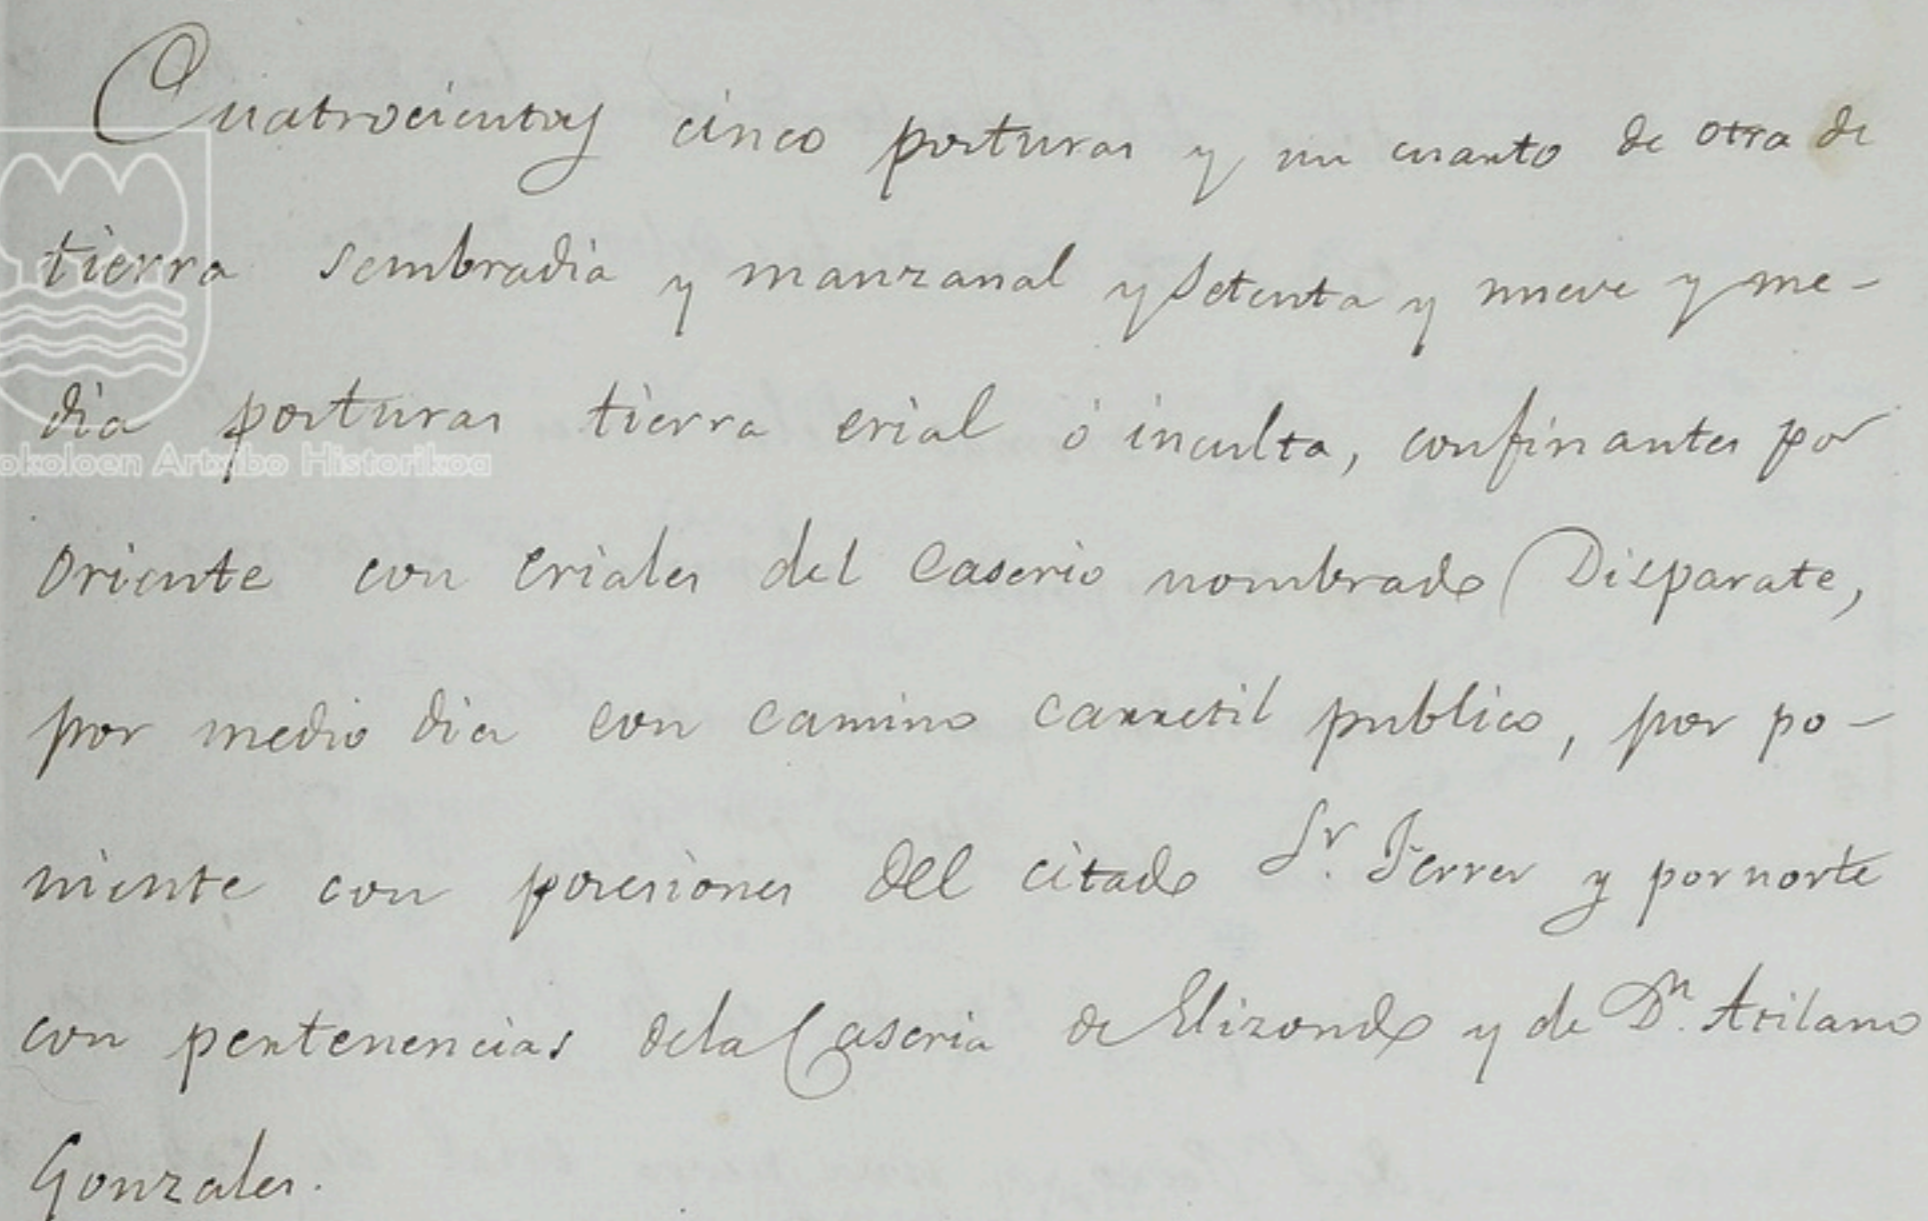 Cuatrocientos cinco posturas y un cuarto de otra de
tierra sembradia y manzanal y setenta y nueve y me-
dia posturas tierra erial ó inculta, confinantes por
oriente con eriales del caserio nombrado Disparate,
por medio dia con camino carretil publico, por po-
niente con posesiones del citado Sr. Ferrer y por norte
con pertenencias dela Caseria de Elizondo y de Dn. Atilano
Gonzales.
okoloen Artxibo Historikoa